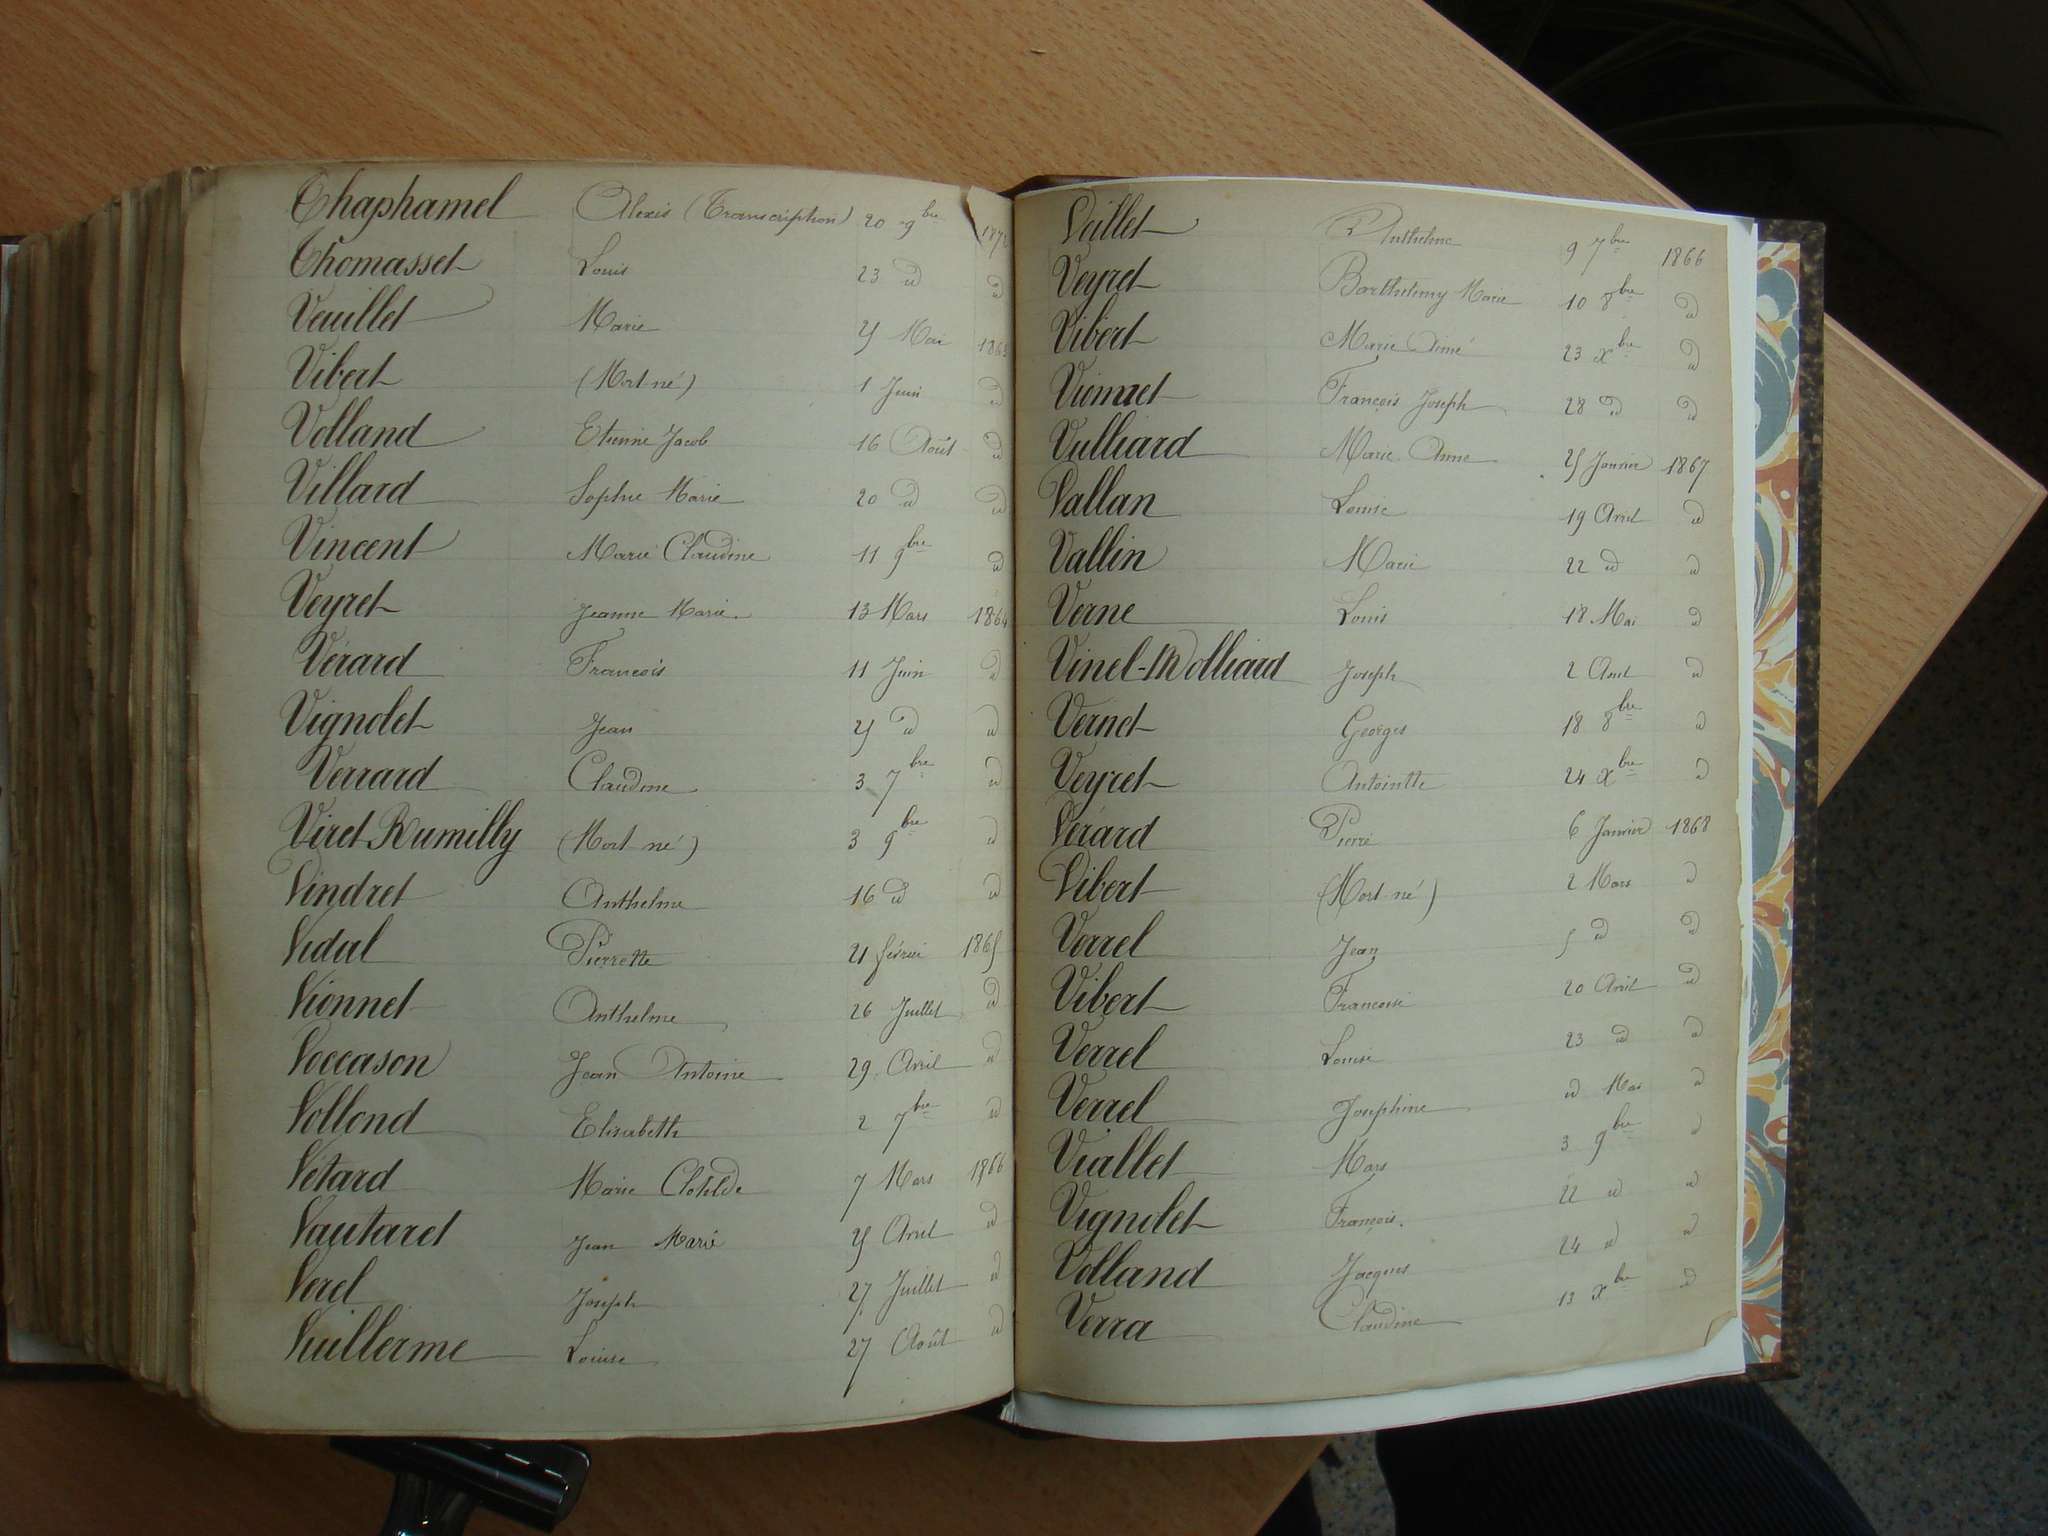 Chaphamel Alexis (Transcription) 20 9bre 187
Thomasset Louis 23 d d
Veuillet Marie 25 Mai 1863
Vibert (Mort-né) 1 Juin d
Volland Etienne Jacob 16 Août d
Villard Sophie Marie 20 d d
Vincent Marie Claudine 11 9bre d
Veyret Jeanne Marie 13 Mars 1864
Vérard François 11 Juin d
Vignolet Jean 25 d d
Verrard Claudine 3 7bre d
Viret-Rumilly (Mort-né) 3 9bre d
Vindret Anthelme 16 d d
Vidal Pierrette 21 février 1865
Vionnet Anthelme 26 Juillet d
Voccason Jean Antoine 29 Avril d
Vollond Elisabeth 2 7bre d
Vétard Marie Clotilde 7 Mars 1866
Vautaret Jean Marie 25 Avril d
Verel Joseph 27 Juillet d
Vuillerme Louise 27 Août d
Veillet Anthelme 9 7bre 1866
Veyret Barthelemy Marie 10 8bre d
Vibert Marie Aimé 23 xbre d
Vionnet François Joseph 28 d d
Vulliard Marie Anne 25 Janvier 1867
Vallan Louise 19 Avril d
Vallin Marie 22 d d
Verne Louis 18 Mai d
Vinel-Molliard Joseph 2 Aout d
Vernet Georges 18 8bre d
Veyret Antoinette 24 xbre d
Vérard Pierre 6 Janvier 1868
Vibert (Mort-né) 2 Mars d
Verrel Jean 5 d d
Vibert Françoise 20 Avril d
Verrel Louise 23 d d
Verrel Josephine d Mai d
Viallet Mars 3 9bre d
Vignolet François 22 d d
Volland Jacques 24 d d
Verra Claudine 13 xbre d